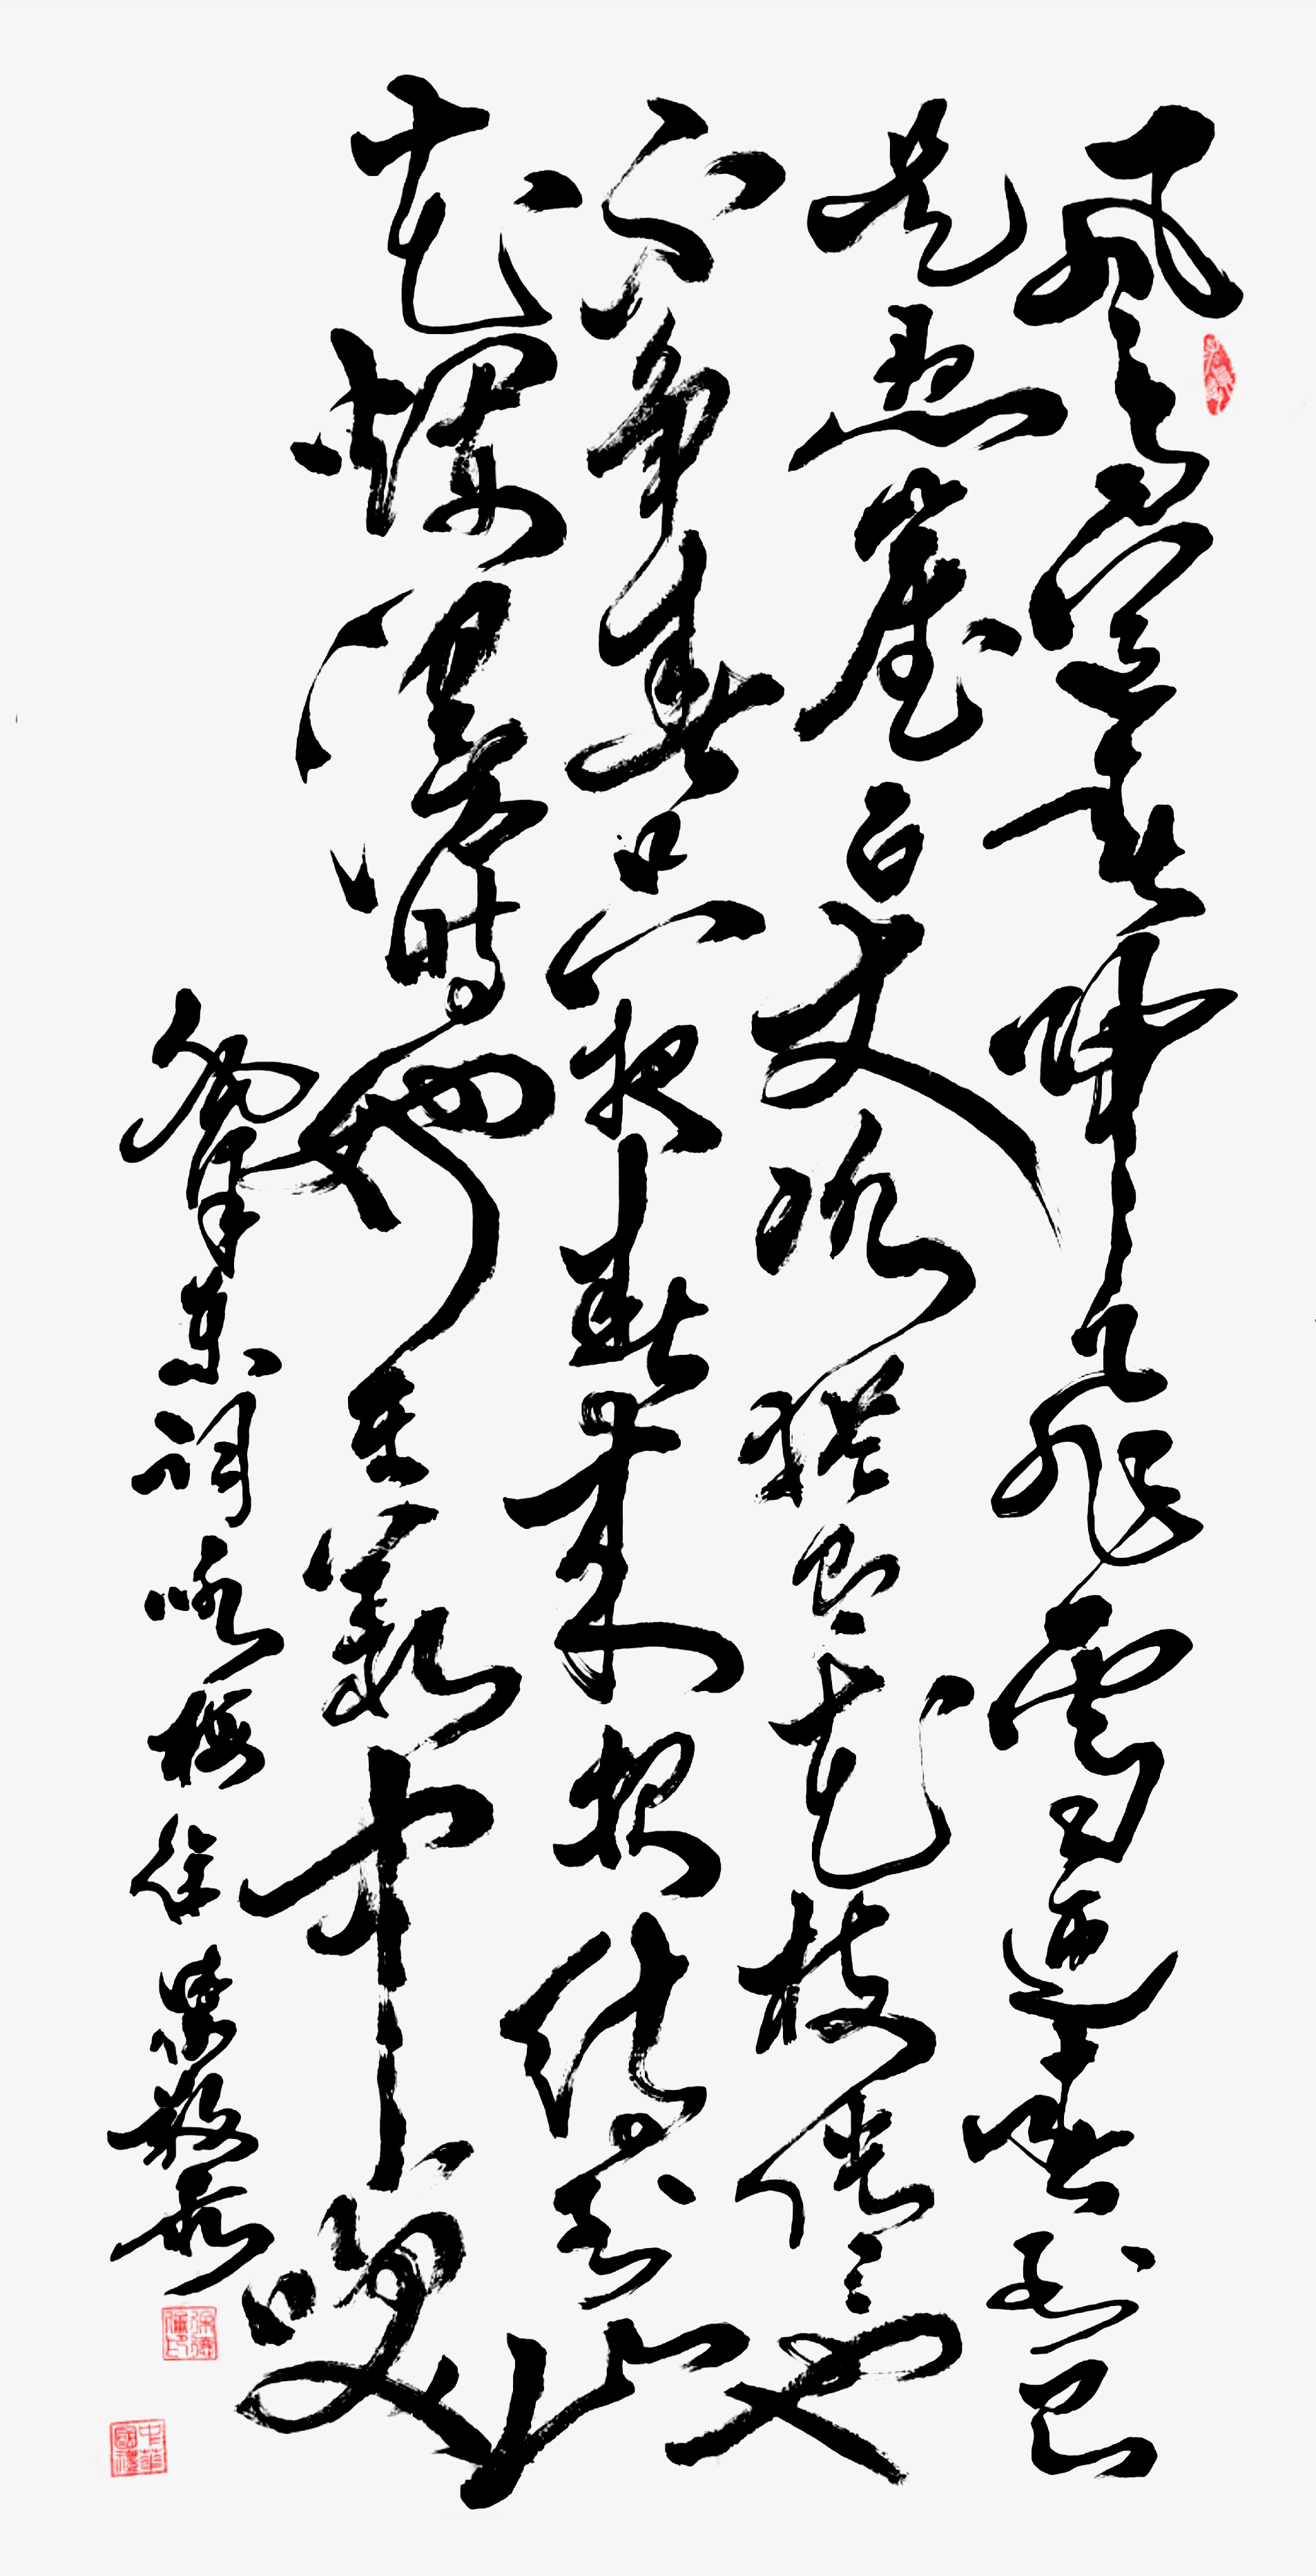 風雨送春歸飛雪迎春到已
是懸崖百丈冰猶有花枝俏〻也
不争春只把春來報待到山
花爛漫時她在叢中笑
东词咏梅徐
中華國禮